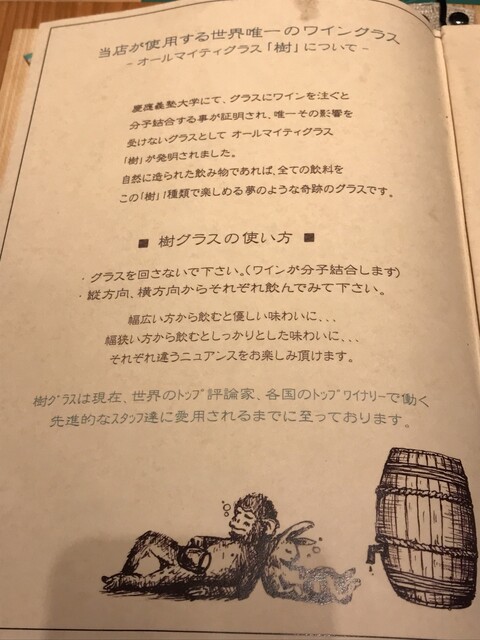 当店が使用する世界唯一のワイングラス
- オールマイティグラス「樹」について -
慶應義塾大学にて、グラスにワインを注ぐと
分子結合する事が証明され、唯一その影響を
受けないグラスとして オールマイティグラス
「樹」が発明されました。
自然に造られた飲み物であれば、全ての飲料を
この「樹」1種類で楽しめる夢のような奇跡のグラスです。
■ 樹グラスの使い方 ■
・グラスを回さないで下さい。(ワインが分子結合します)
・縦方向、横方向からそれぞれ飲んでみて下さい。
幅広い方から飲むと優しい味わいに...
幅狭い方から飲むとしっかりとした味わいに...
それぞれ違うニュアンスをお楽しみ頂けます。
樹グラスは現在、世界のトップ評論家、各国のトップワイナリーで働く
先進的なスタッフ達に愛用されるまでに至っております。